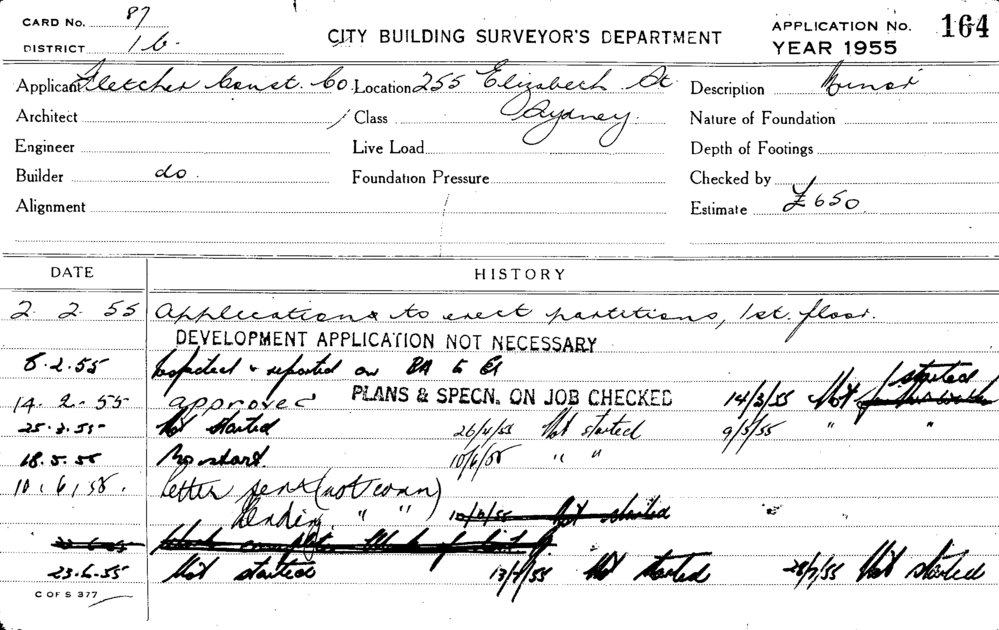 CARD No. 87
DISTRICT 1b.
CITY BUILDING SURVEYOR'S DEPARTMENT
APPLICATION No. 164
YEAR 1955
Applicant Fletcher Const. Co. Location 255 Elizabeth St Description Minor
Architect Class Sydney. Nature of Foundation
Engineer Live Load Depth of Footings
Builder do. Foundation Pressure Checked by
Alignment Estimate £650.
DATE HISTORY
2. 2. 55 Application to erect partitions, 1st. floor.
DEVELOPMENT APPLICATION NOT NECESSARY
8.2.55 Inspected & reported on BA to
started
14. 2. 55 approved PLANS & SPECN. ON JOB CHECKED 14/3/55 Not
25.3.55 Not started 26/4/55 Not started 9/5/55 " "
18.5.55 No start. 10/6/55 " "
10.6.55. letter sent (not comm)
Pending " " ) 10/6/55 Not started
23.6.55 Not started 13/7/55 Not started 28/7/55 Not started
C OF S 377